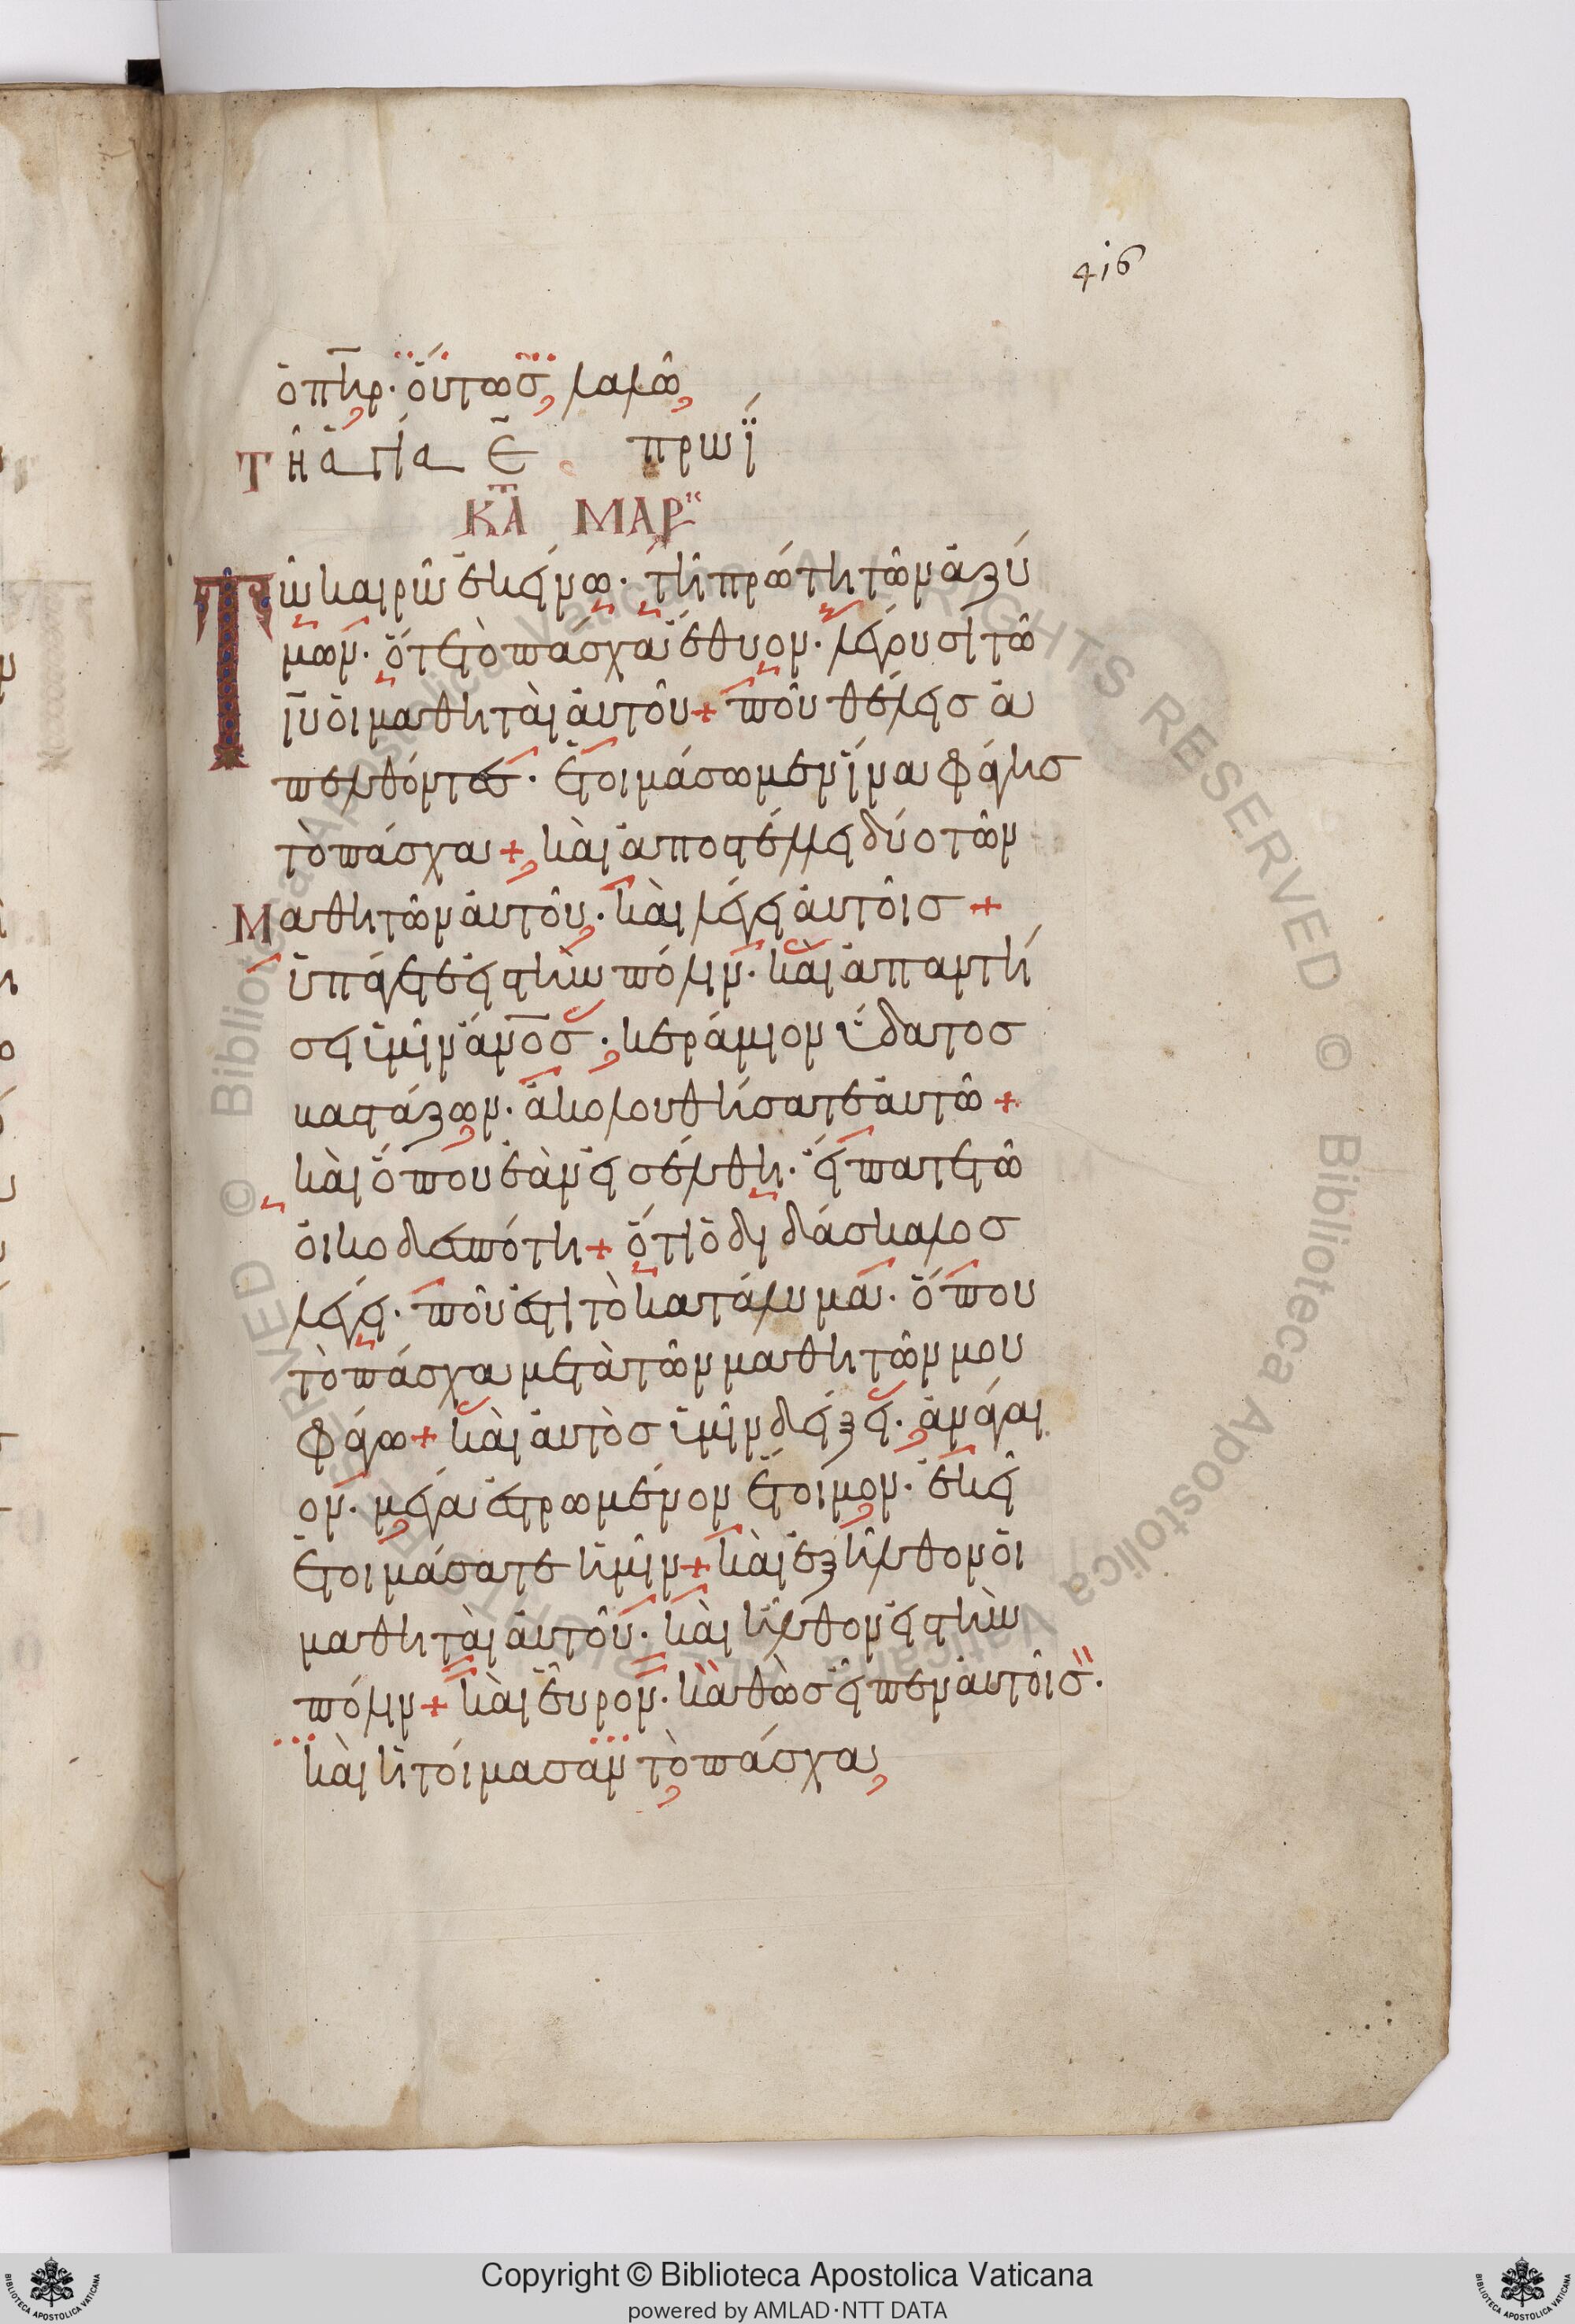 416
ὁ πη̅ρ· οὕτωσ λαλῶ
Τῆ ἁγία ε̅ πρωΐ
ΚΑΤ ΜΑΡ
Τῶ καιρῶ ἐκείνω· τῆ πρώτη τῶν ἀζύ
μων· ὅτε τὸ πάσχα ἔθυον· λέγουσι τῶ
ι̅υ̅ οἱ μαθηταὶ ἀυτοῦ + ποῦ θέλεισ ἀ
πελθόντεσ· ἑτοιμάσωμεν ἵνα φάγησ
τὸ πάσχα + καὶ ἀποστέλλει δύο τῶν
Μαθητῶν ἀυτοῦ· καὶ λέγει ἀυτοῖσ +
ὑπάγετε εἰς τὴν πόλιν· καὶ ἀπαντή
σει ὑμῖν ἄν̅ο̅σ̅· κεράμιον ὕδατοσ
βαστάζων· ἀκολουθήσατε ἀυτῶ +
καὶ ὅπου ἐὰν εἰσέλθη· εἴπατε τῶ
ὀικοδεσπότη + ὅτι ὁ διδάσκαλοσ
λέγει· ποῦ ἐστὶ τὸ κατάλυμα· ὅπου
τὸ πάσχα μετὰ τῶν μαθητῶν μου
φάγω + καὶ ἀυτὸσ ὑμῖν δείξει· ἀνάγαι
ον· μέγα ἐστρωμένον ἕτοιμον· ἐκεῖ
ἑτοιμάσατε ἡμῖν + καὶ ἐξῆλθον οἱ
μαθηταὶ ἀυτοῦ· καὶ ἦλθον εἰς τὴν
πόλιν + καὶ εὗρον· καθὼσ εἶπεν ἀυτοῖσ·
καὶ ἡτοίμασαν τὸ πάσχα
Copyright © Biblioteca Apostolica Vaticana
powered by AMLAD·NTT DATA
BIBLIOTECA APOSTOLICA VATICANA
BIBLIOTECA APOSTOLICA VATICANA
© Biblioteca Apostolica Vaticana ALL RIGHTS RESERVED © Biblioteca Apostolica Vaticana ALL RIGHTS RESERVED